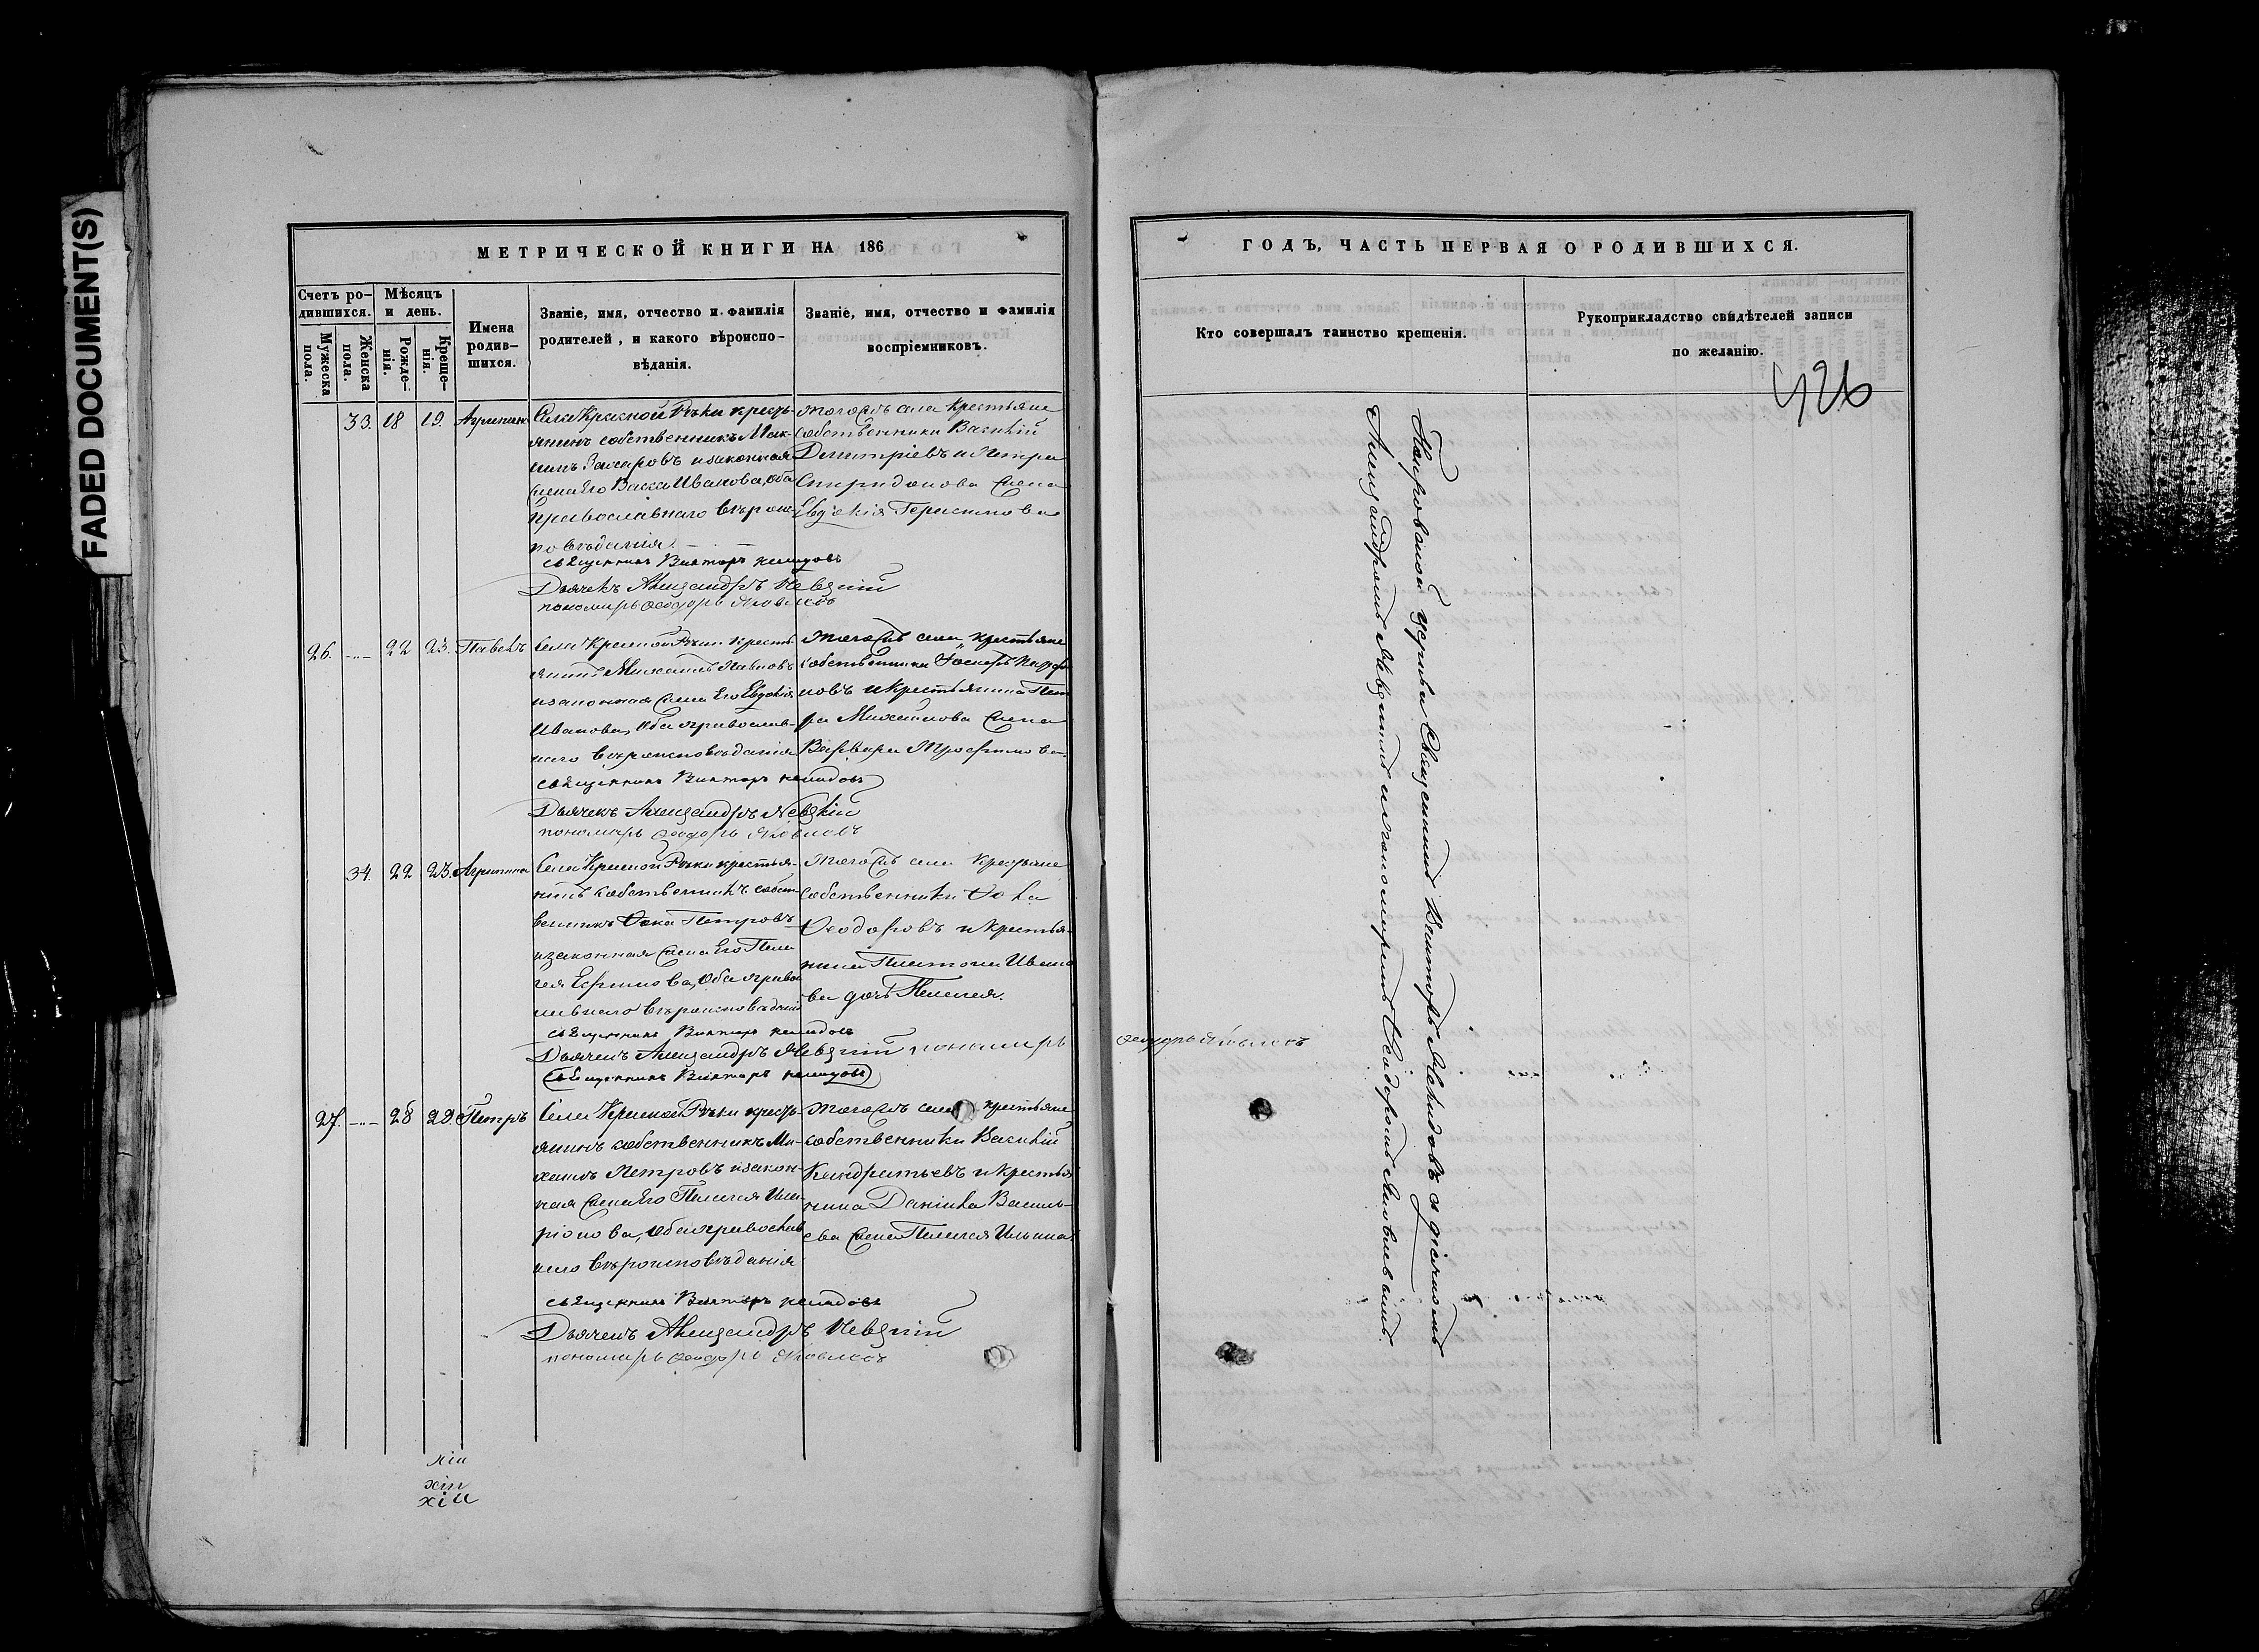 FADED DOCUMENT(S)
МЕТРИЧЕСКОЙ КНИГИ НА 186
Счетъ ро-
дившихся.
Мужеска
пола.
Женска
пола.
Мѣсяцъ
и день.
Рожде-
нія.
Креще-
нія.
Имена
родив-
шихся.
Званіе, имя, отчество и фамилія
родителей, и какого вѣроиспо-
вѣданія.
Званіе, имя, отчество и фамилія
воспріемниковъ.
33. 18 19.
Села Красной Рѣки кресть-
янинъ собственникъ Мак-
Захаровъ и законная
жена Его Васса Иванова, оба
православнаго вѣроис-
повѣданія.
Священникъ Викторъ
Дьячекъ Александръ Невскій
пономарь Ѳеодоръ Яковлевъ
тогожъ села крестьяне
собственники Василій
Димитріевъ и Петра
Спиридонова жена
Евдокія Герасимова
26. 22 23. Павелъ
Села Красной Рѣки кресть
янинъ Михаилъ Павловъ
и законная жена Его Евдокія
Иванова, оба православ-
наго вѣроисповѣданія
Священникъ Викторъ
Дьячекъ Александръ Невскій
пономарь Ѳеодоръ Яковлевъ
тогожъ села крестьяне
собственники
новъ и крестьянина Пет
ра Михайлова жена
Варвара Трофимова
34. 22 23. Агрипина
Села Красной Рѣки крестья-
нинъ собственникъ собст-
венникъ Ѳока Петровъ
и законная жена Его Пела
гея Ефимова, оба право
славнаго вѣроисповѣданія
Священникъ Викторъ
Дьячекъ Александръ Невскій пономарь
Ѳеодоръ Яковлевъ
Священникъ Викторъ
тогожъ села крестьяне
собственники Ѳока
Ѳеодоровъ и крестья-
нина Платона Ивано
ва дочь Пелагея.
27. 28 29. Петръ
Села Красной Рѣки кресть-
янинъ собственникъ Ми-
хаилъ Петровъ и закон-
ная жена Его Пелагея Ила-
ріонова, оба православ
наго вѣроисповѣданія
Священникъ Викторъ
Дьячекъ Александръ Невскій
пономарь Ѳеодоръ Яковлевъ
тогожъ села крестьяне
собственники Василій
Кандратьевъ и крестья
нина Даніила Василь-
ева жена Пелагея Ильина
ГОДЪ, ЧАСТЬ ПЕРВАЯ О РОДИВШИХСЯ.
Кто совершалъ таинство крещенія.
Рукоприкладство свидѣтелей записи
по желанію.
426
Покровской Церкви Священникъ Викторъ съ дьячкомъ
Александромъ Невскимъ и пономаремъ Ѳеодоромъ Яковлевымъ.